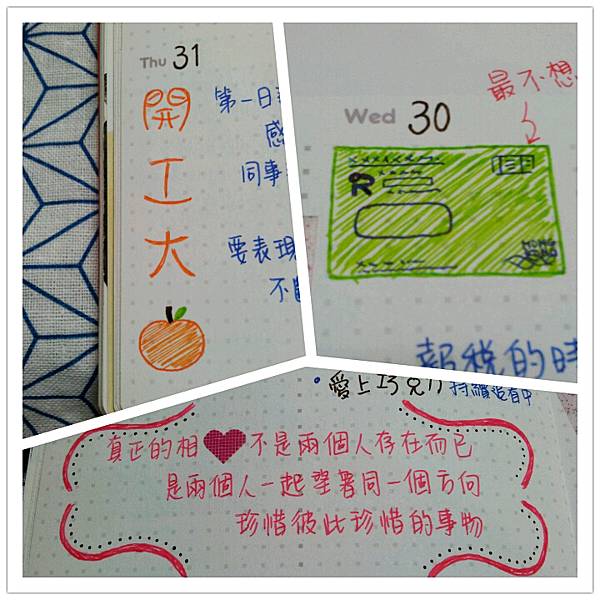 Thu 31
開
工
大
第一日
感
同事
要表現
不
Wed 30
最不想
R
報稅的時
•愛上巧克力 持續追看中
真正的相 不是兩個人存在而已
是兩個人一起望著同一個方向
珍惜彼此珍惜的事物